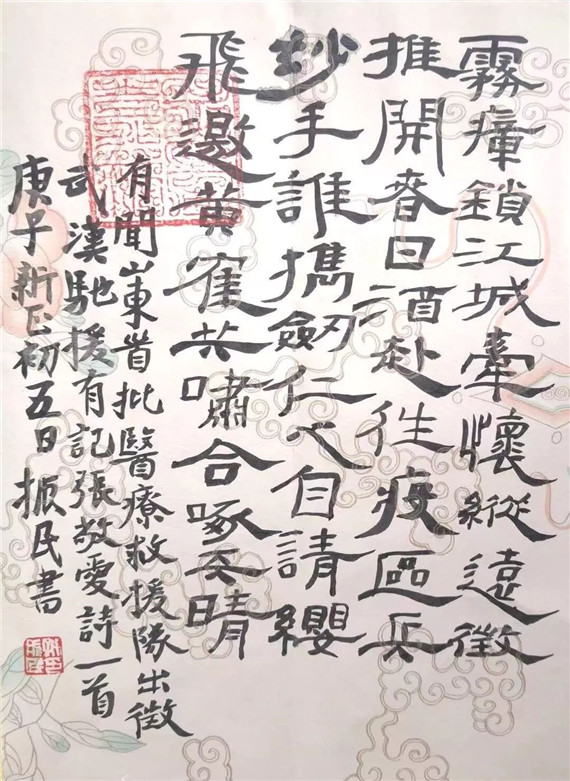 霧瘴鎖江城牽懷縱遠徵
推開春日酒赴往疫區兵
妙手誰攜劒仁心自請纓
飛邀黃隺共嘯合啄天晴
有聞山東首批醫療救援隊出徵
武漢馳援有記張敬愛詩一首
庚子新正初五日振民書